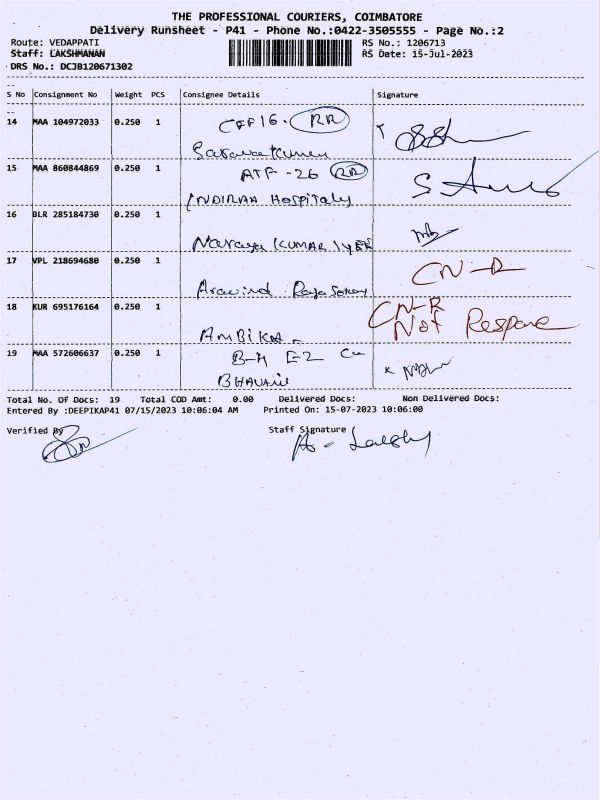 THE PROFESSIONAL COURIERS, COIMBATORE
Delivery Runsheet - P41 - Phone No.:0422-3505555 - Page No.:2
Route: VEDAPPATI RS No.: 1206713
Staff: LAKSHMANAN RS Date: 15-Jul-2023
DRS No.: DCJB120671302
S No Consignment No Weight PCS Consignee Details Signature
14 MAA 104972033 0.250 1 RR
15 MAA 860844869 0.250 1 ATF -26 RR
INDIRAA Hospitaly
16 BLR 285184730 0.250 1
KUMAR
17 VPL 218694680 0.250 1 CN-R
Aravind
18 KUR 695176164 0.250 1 CN-R
Not Respone
AMBIKA
19 MAA 572606637 0.250 1 E2
BHAVANI
Total No. Of Docs: 19 Total COD Amt: 0.00 Delivered Docs: Non Delivered Docs:
Entered By :DEEPIKAP41 07/15/2023 10:06:04 AM Printed On: 15-07-2023 10:06:00
Verified By Staff Signature